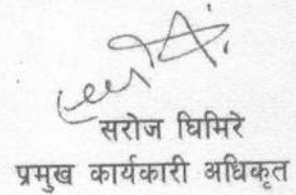 सरोज घिमिरे
प्रमुख कार्यकारी अधिकृत